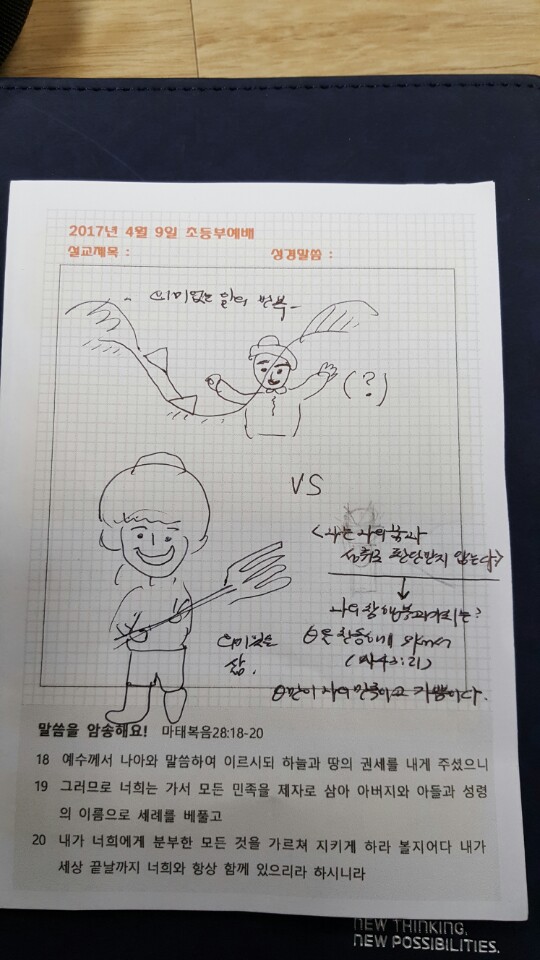 2017년 4월 9일 초등부예배
설교제목 :
성경말씀 :
- 의미없는 일의 반복 -
(?)
VS
<나는 나의 능력과
성취로 판단받지 않는다>
나의 참 행복의 가치는?
의미없는
삶.
말씀을 암송해요! 마태복음28:18-20
18 예수께서 나아와 말씀하여 이르시되 하늘과 땅의 권세를 내게 주셨으니
19 그러므로 너희는 가서 모든 민족을 제자로 삼아 아버지와 아들과 성령
의 이름으로 세례를 베풀고
20 내가 너희에게 분부한 모든 것을 가르쳐 지키게 하라 볼지어다 내가
세상 끝날까지 너희와 항상 함께 있으리라 하시니라
NEW THINKING.
NEW POSSIBILITIES.